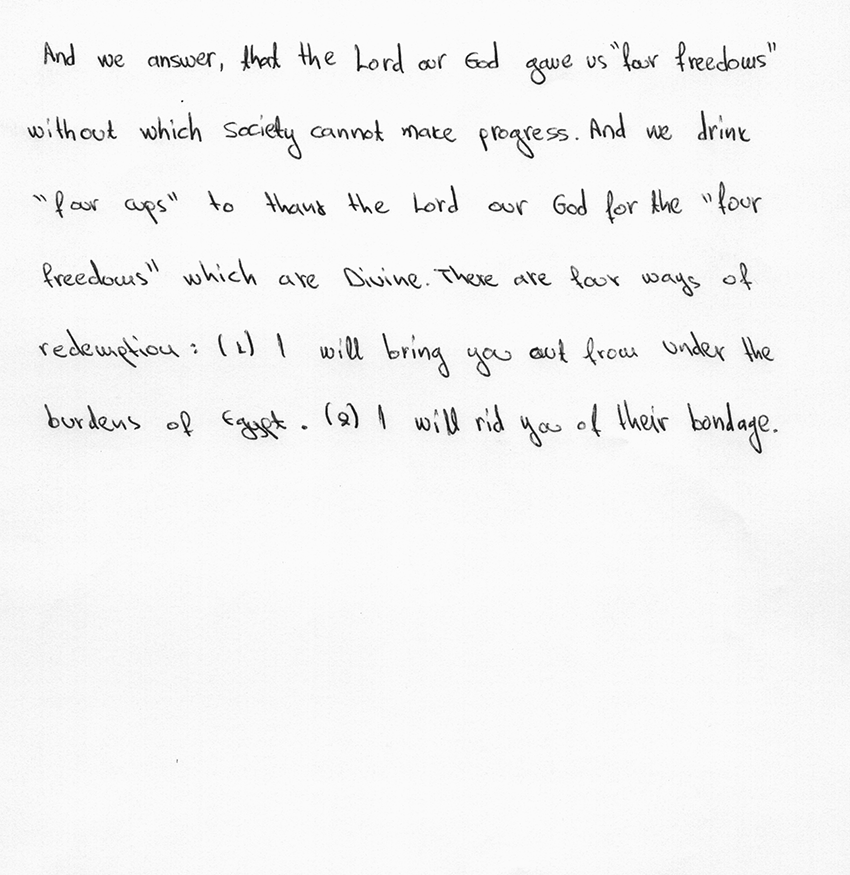 And we answer, that the Lord our God gave us "four freedoms"
without which society cannot make progress. And we drink
"four cups" to thank the Lord our God for the "four
freedoms" which are Divine. There are four ways of
redemption: (1) I will bring you out from under the
burdens of Egypt. (2) I will rid you of their bondage.